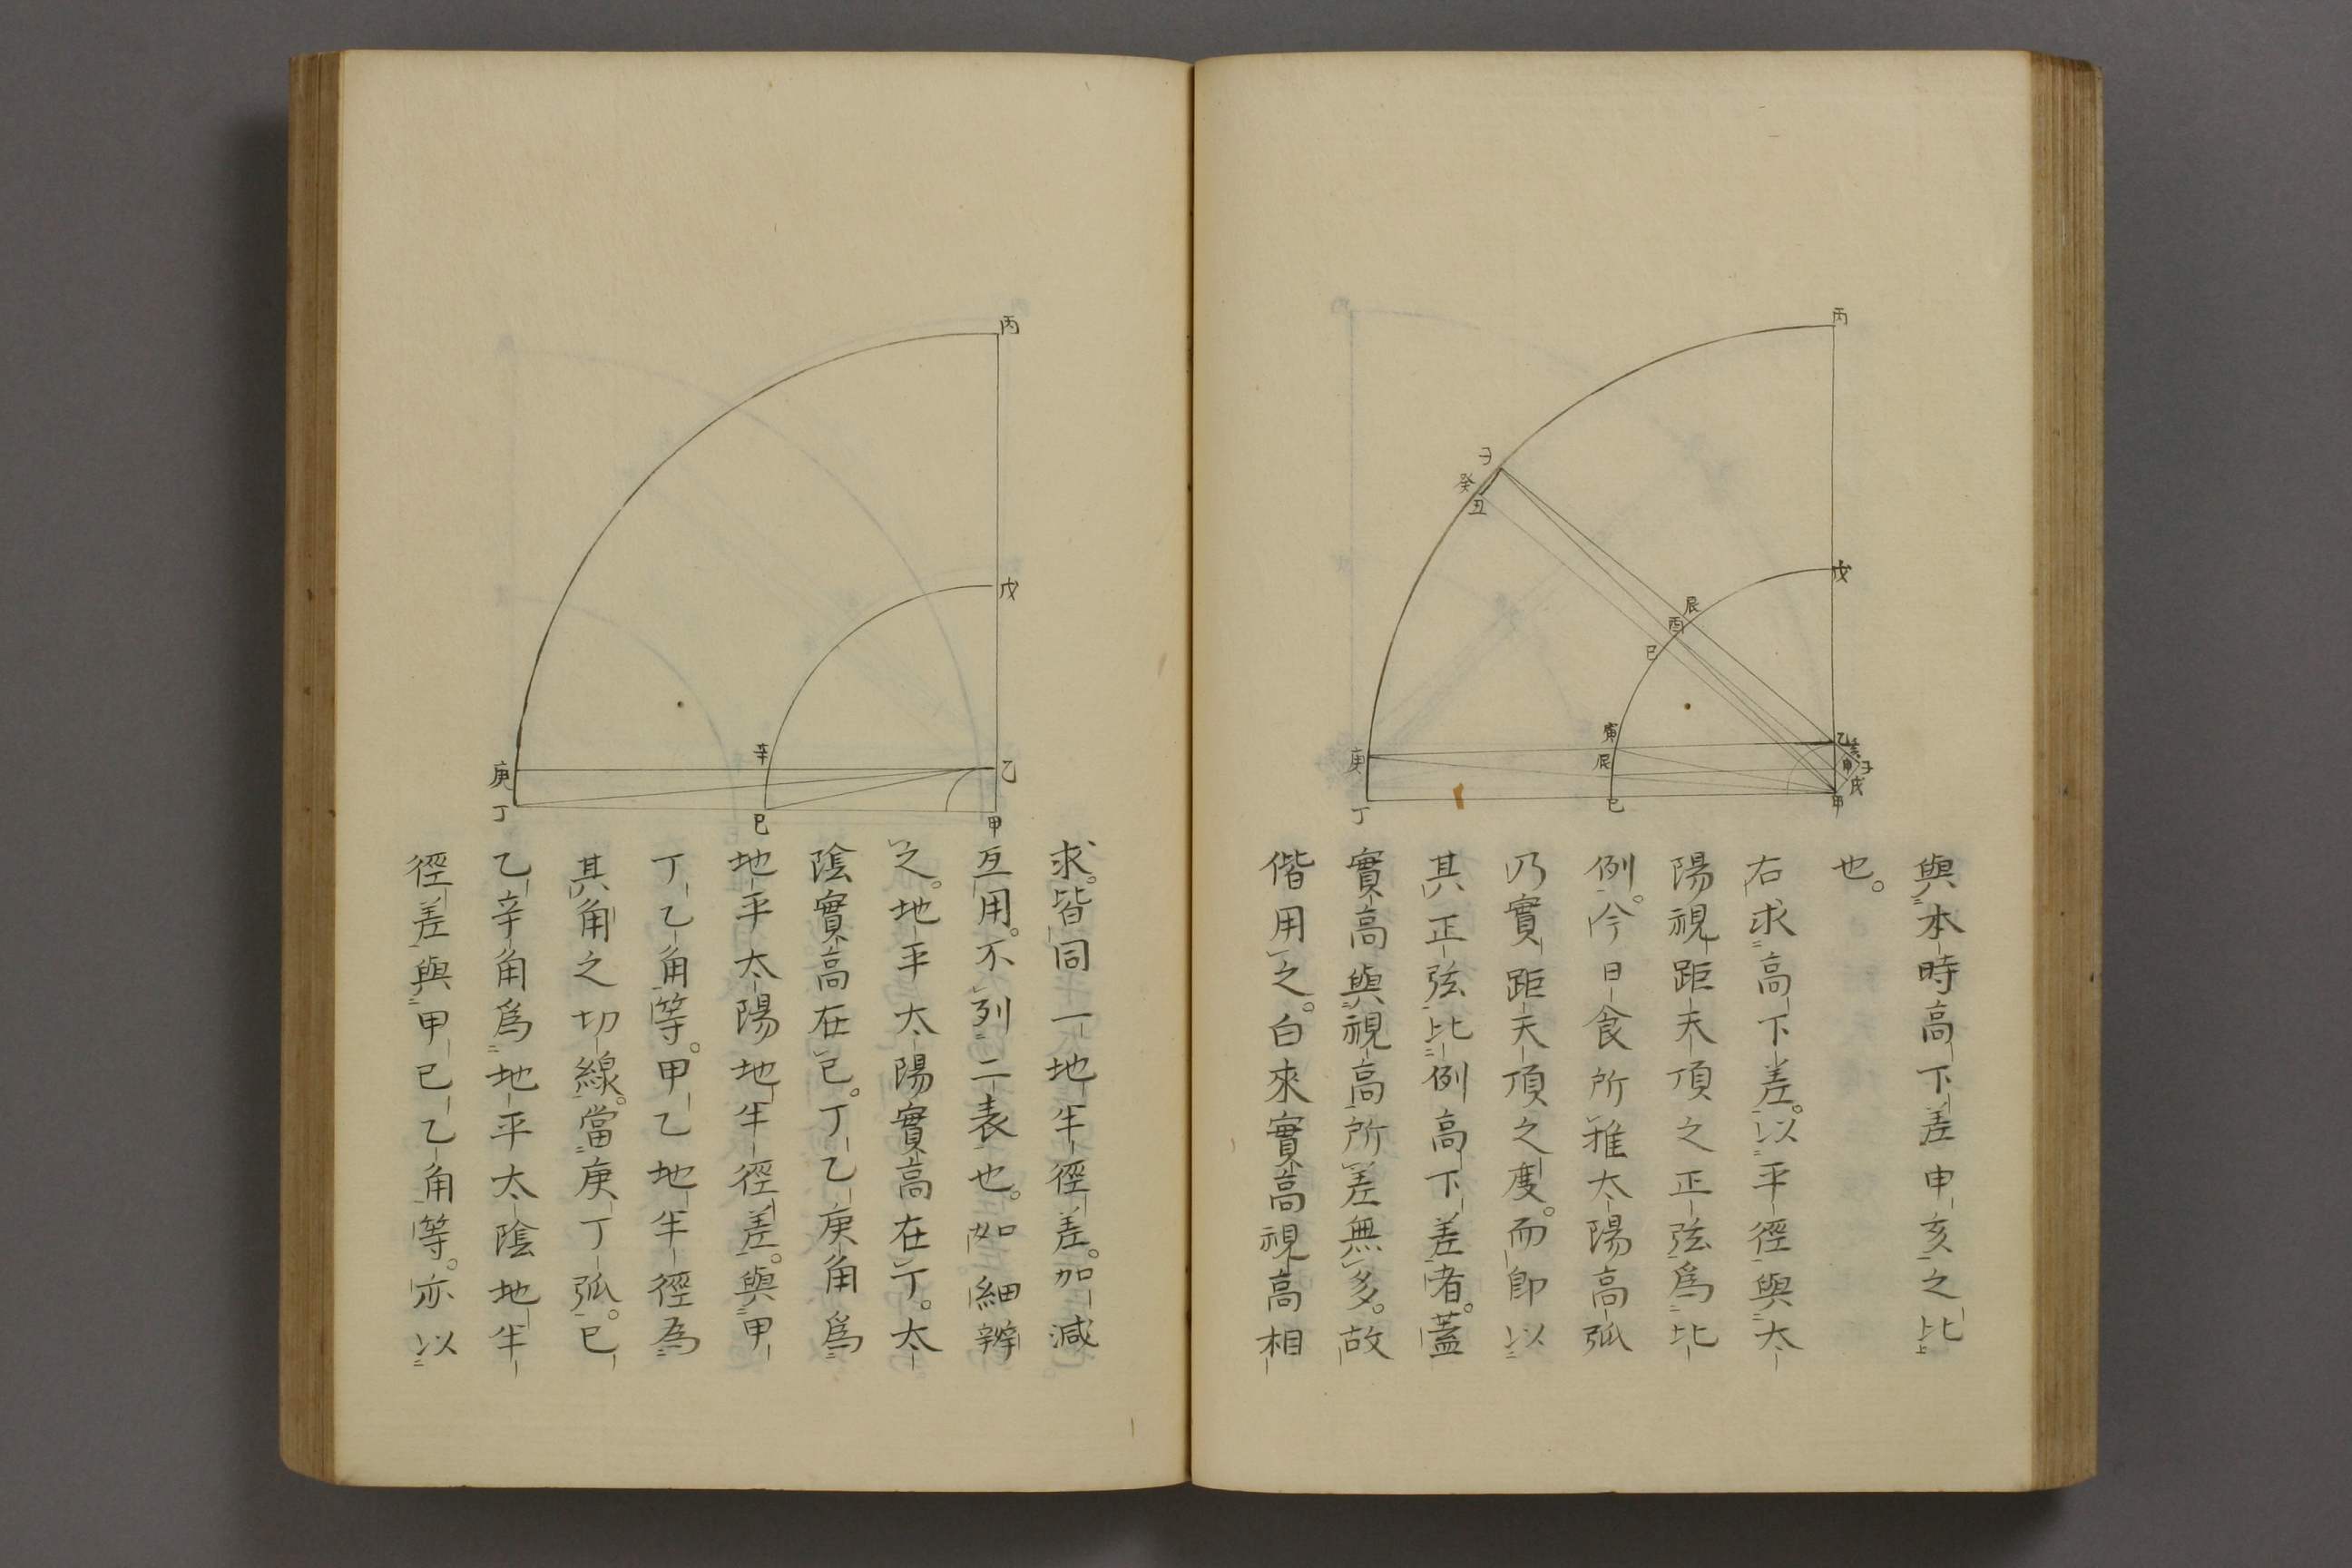 與本時高下差申亥之比
也。
右求高下差。以平徑與太
陽視距天頂之正弦爲比
例。今日食所推太陽高弧
乃實距天頂之度。而即以
其正弦比例高下差者。蓋
實高與視高所差無多。故
偕用之。白來實高視高相
丙
子
癸
丑
戊
辰
酉
巳
寅
辰
庚
丁
己
乙
亥
申
子
戌
甲
求。皆同一地半徑差。加減
互用。不列二表也。如細辨
之。地平太陽實高在丁。太
陰實高在己。丁乙庚角爲
地平太陽地半徑差。與甲
丁乙角等。甲乙地半徑為
其角之切線。當庚丁弧。已
乙辛角爲地平太陰地半
徑差與甲已乙角等。亦以
丙
戊
辛
庚
乙
丁
巳
甲